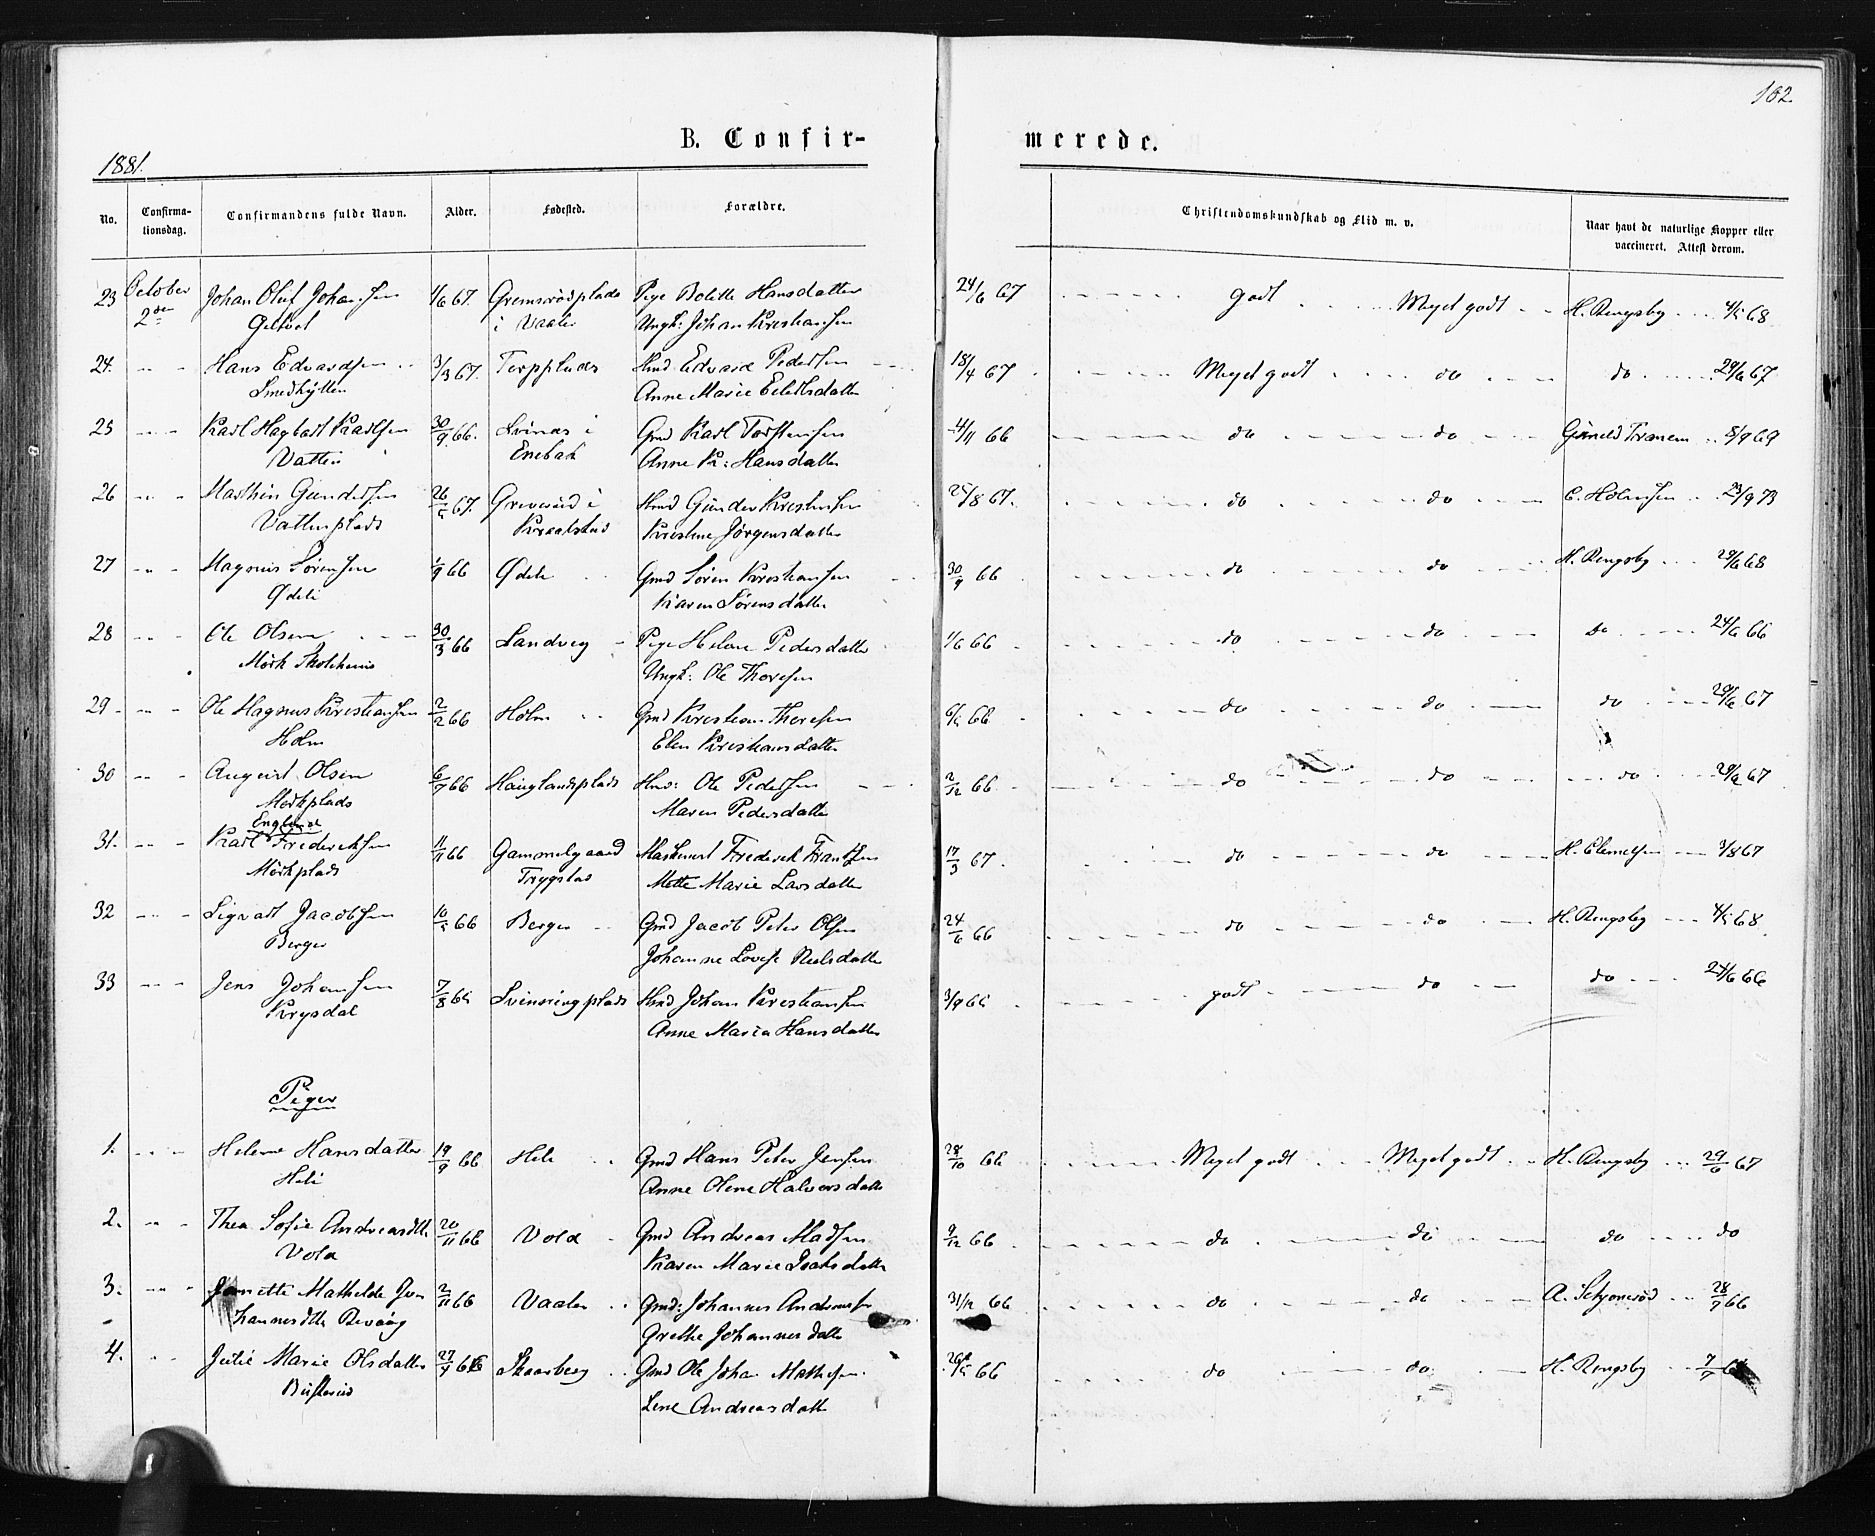 102.
B. Confir- merede.
1881.
No. Confirma- Confirmandens fulde Navn. Alder. Fødested. Forældre. Christendomskundskab og Flid m. v. Naar havt de naturlige Kopper eller
tionsdag. vaccineret. Attest derom.
23 October Johan Oluf Johansen 1/6 67. Gremsrødplads Pige Bolette Hansdatter 24/6 67 godt Meget godt H. Rengsby 4/5 68
2den i Vaaler Ungk: Johan Kristiansen
24. " " Hans Edvardsen 3/3 67. Terpplads Hmd Edvard Pedersen 18/4 67 Meget godt do do 29/6 67
Smedhytten Anne Marie Eilertsdatter
25 " " Karl Hagbart Karlsen 30/9 66. i Gmd Karl Torstensen 4/11 66 do do 5/9 69
Vatten Enebak Anne K: Hansdatter
26 " " Marthin Gundersen 26/5 67. i Hmd Gunder Kristensen 25/8 67. do do C. Holmsen 23/9 73
Vattenplads Kraakstad Kristine Jørgensdatter
27 " " Magnus Sørensen 1/9 66 Ødeli Gmd Søren Kristiansen 30/9 66 do do H. Rengsby 29/6 68
Ødeli Karen Sørensdatter
28 " " Ole Olsen 30/3 66 Sandveg Pige Helene Pedersdatter 1/6 66 do do do 24/6 66
Mørk Ungk: Ole Thoresen
29 " " Ole Magnus Kristiansen 2/2 66 Holm Gmd Kristian Thoresen 6/5 66 do do do 29/6 67
Holm Elen Kristiansdatter
30 " " August Olsen 6/7 66 Hauglandsplads Hmd: Ole Pedersen 2/12 66 do do do 29/6 67
Mørkplads Maren Pedersdatter
England
31. " " Karl Frederiksen 11/11 66 Gammelgaard Maskinist Frederik Frantzen 17/3 67. do do H. Clemetsen 3/8 67
Mørkplads Trygstad Mette Marie Larsdatter
32 " " Sigvart Jacobsen 10/5 66 Berger Gmd Jacob Peter Olsen 24/6 66 do do H. Rengsby 4/5 68
Berger Johanne Lovise Nielsdatter
33 " " Jens Johansen 7/8 65 Svinningplads Hmd Johan Kristiansen 3/9 65 godt do do 24/6 66
Krysdal Anne Maria Hansdatter
Piger
1. " " Helene Hansdatter 19/9 66 Heli Gmd Hans Peter Jensen 28/10 66 Meget godt Meget godt H. Rengsby 29/6 67
Heli Anne Olene Halvorsdatter
2. " " Thea Sofie Andreasdtt. 20/11 66 Vold Gmd Andreas Madsen 9/12 66 do do do do
Vold Karen Marie Isaksdatter
3. " " Janette Mathilde Jo- 2/11 66 Vaaler Gmd: Johannes Andersen 31/12 66 do do A. Schjonerød 28/7 66
hannesdtt Grethe Johannesdatter
4. " " Julie Marie Olsdatter 27/9 66 Skaarberg Gmd Ole Johan Mathisen 66 do do H. Rengsby 7/7
Lene Andreasdatter